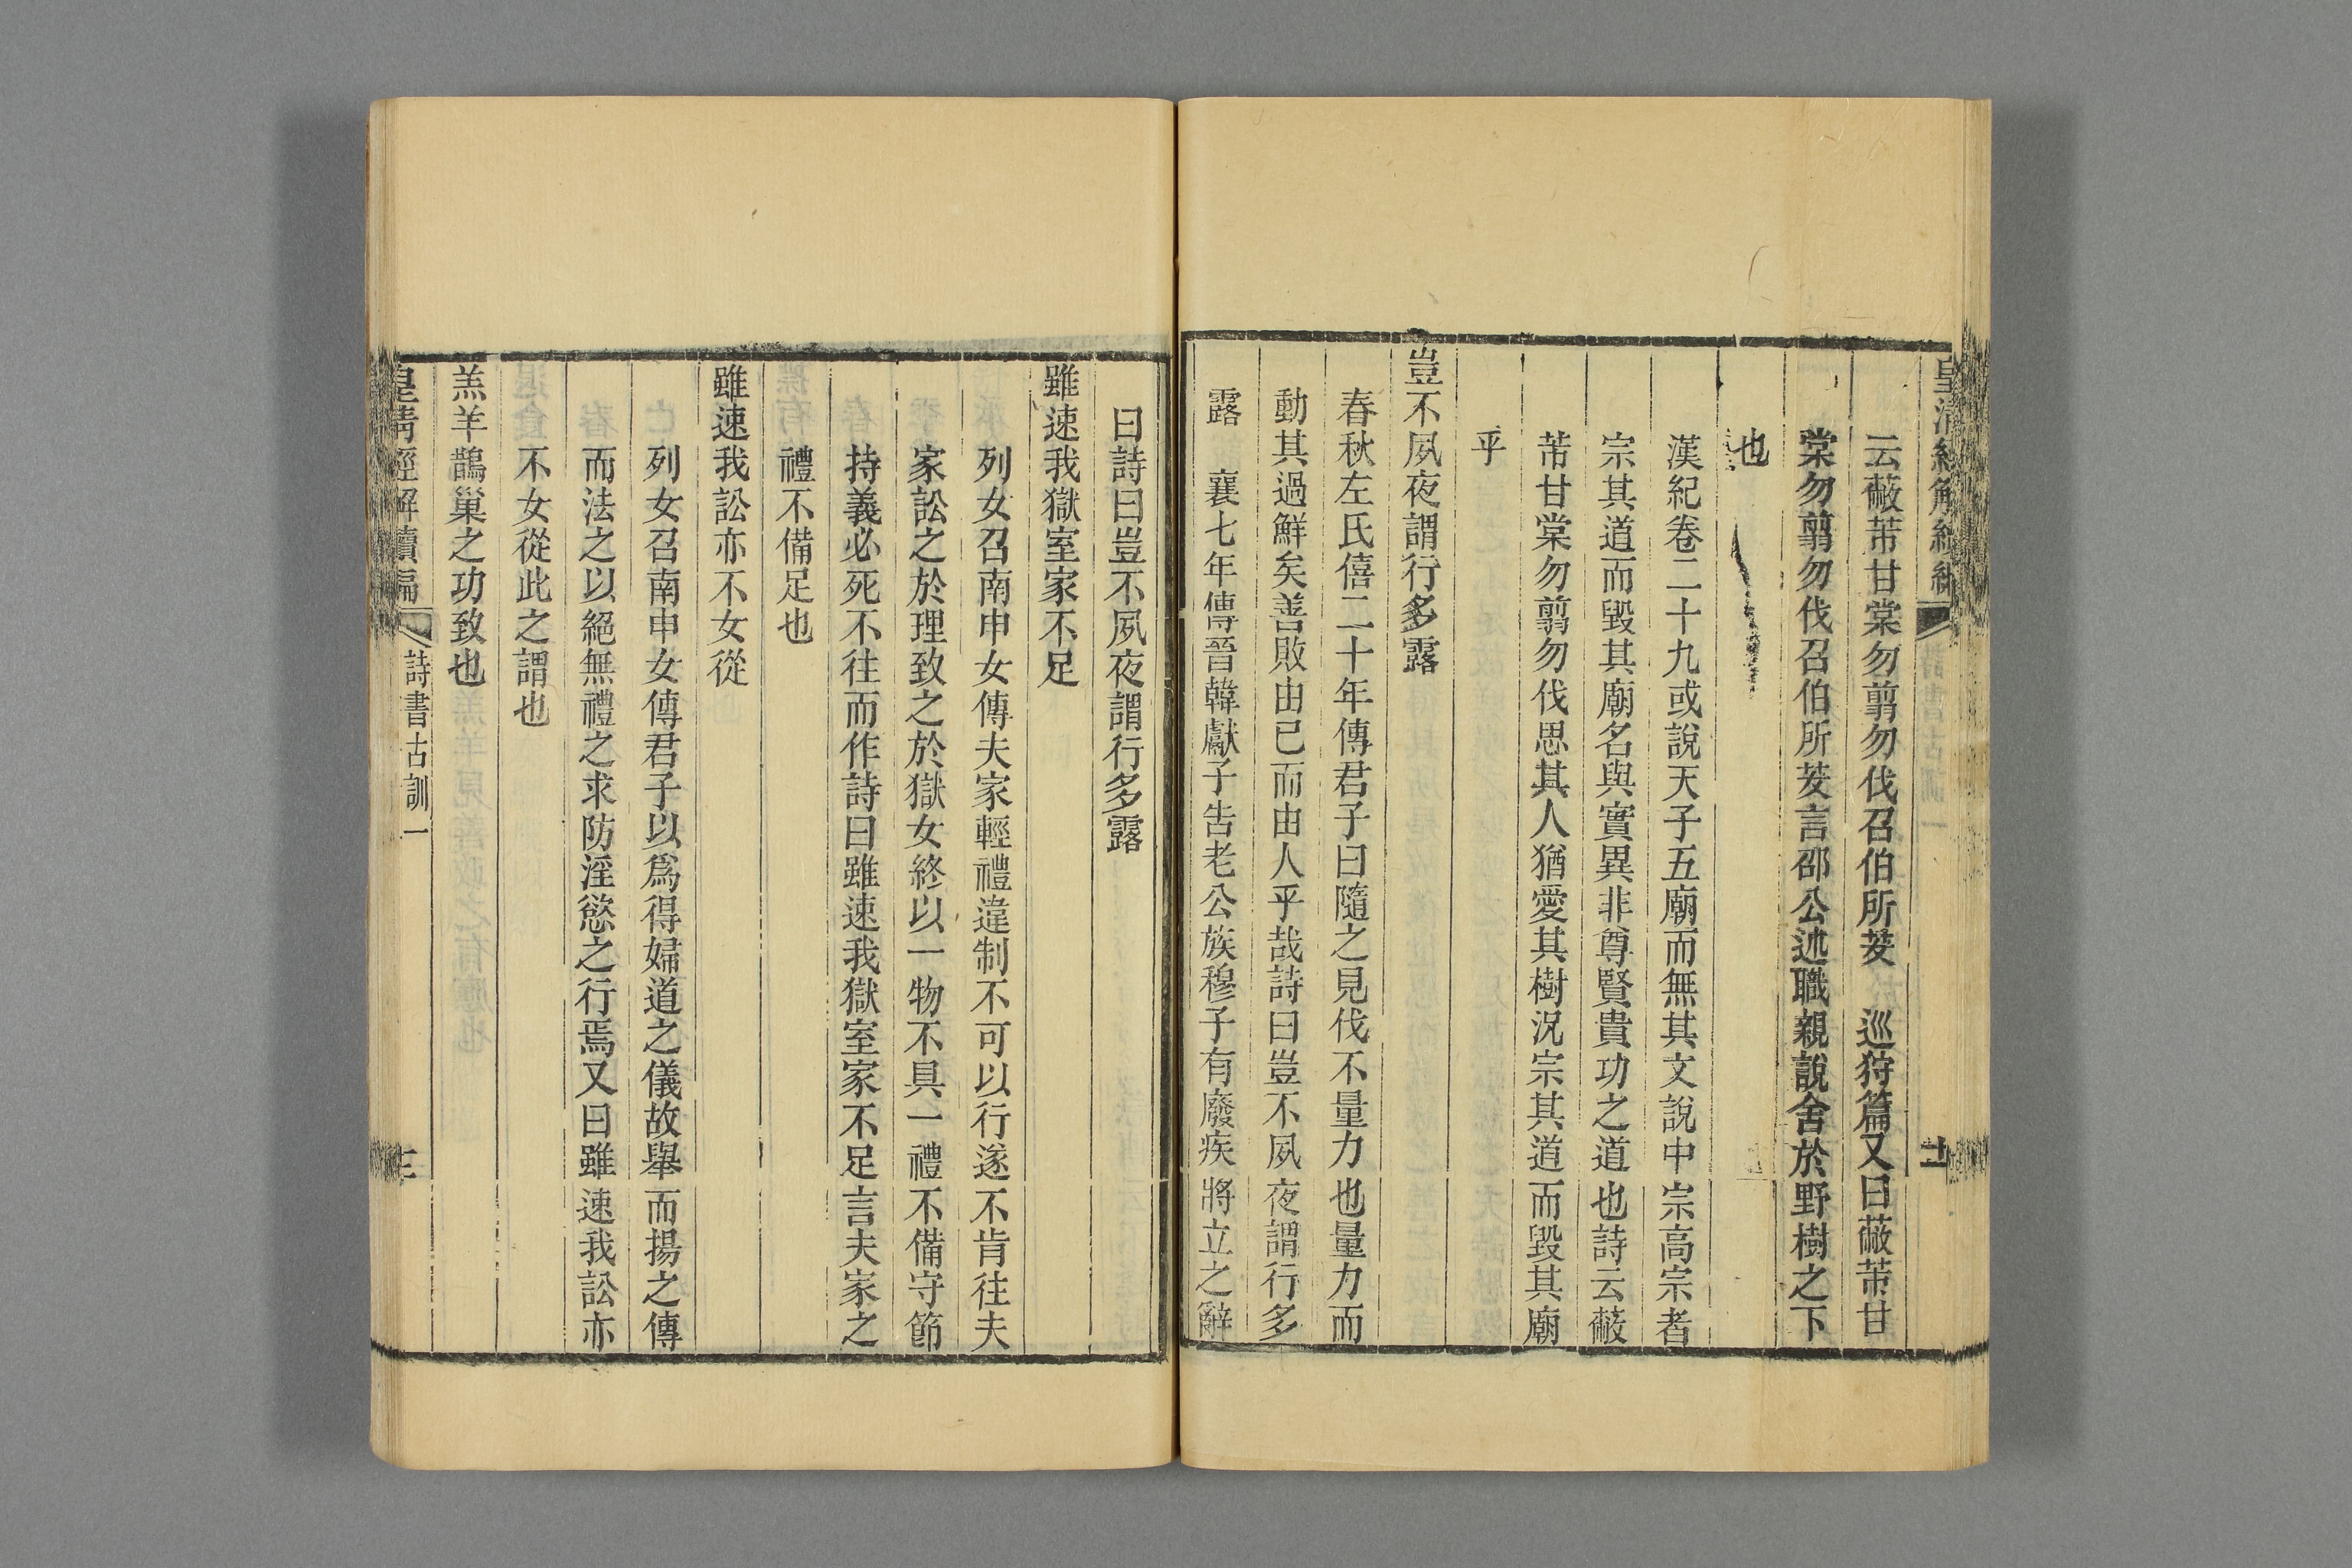 皇清經解續編 詩書古訓一 十二
云蔽芾甘棠勿翦勿伐召伯所茇 巡狩篇又曰蔽芾甘
棠勿翦勿伐召伯所茇言邵公述職親說舍於野樹之下
也
漢紀卷二十九或說天子五廟而無其文說中宗高宗者
宗其道而毀其廟名與實異非尊賢貴功之道也詩云蔽
芾甘棠勿翦勿伐思其人猶愛其樹況宗其道而毀其廟
乎
豈不夙夜謂行多露
春秋左氏僖二十年傳君子曰隨之見伐不量力也量力而
動其過鮮矣善敗由己而由人乎哉詩曰豈不夙夜謂行多
露 襄七年傳晉韓獻子告老公族穆子有廢疾將立之辭
曰詩曰豈不夙夜謂行多露
雖速我獄室家不足
列女召南申女傳夫家輕禮違制不可以行遂不肯往夫
家訟之於理致之於獄女終以一物不具一禮不備守節
持義必死不往而作詩曰雖速我獄室家不足言夫家之
禮不備足也
雖速我訟亦不女從
列女召南申女傳君子以爲得婦道之儀故舉而揚之傳
而法之以絕無禮之求防淫慾之行焉又曰雖速我訟亦
不女從此之謂也
羔羊鵲巢之功致也
皇清經解續編 詩書古訓一